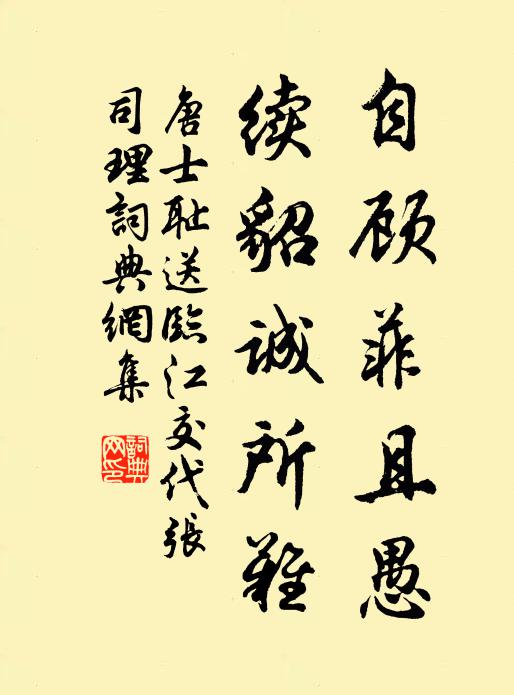 自顾菲且愚
续貂诚所难
唐士耻送臨江交代張
司理詞典網集
詞典网印